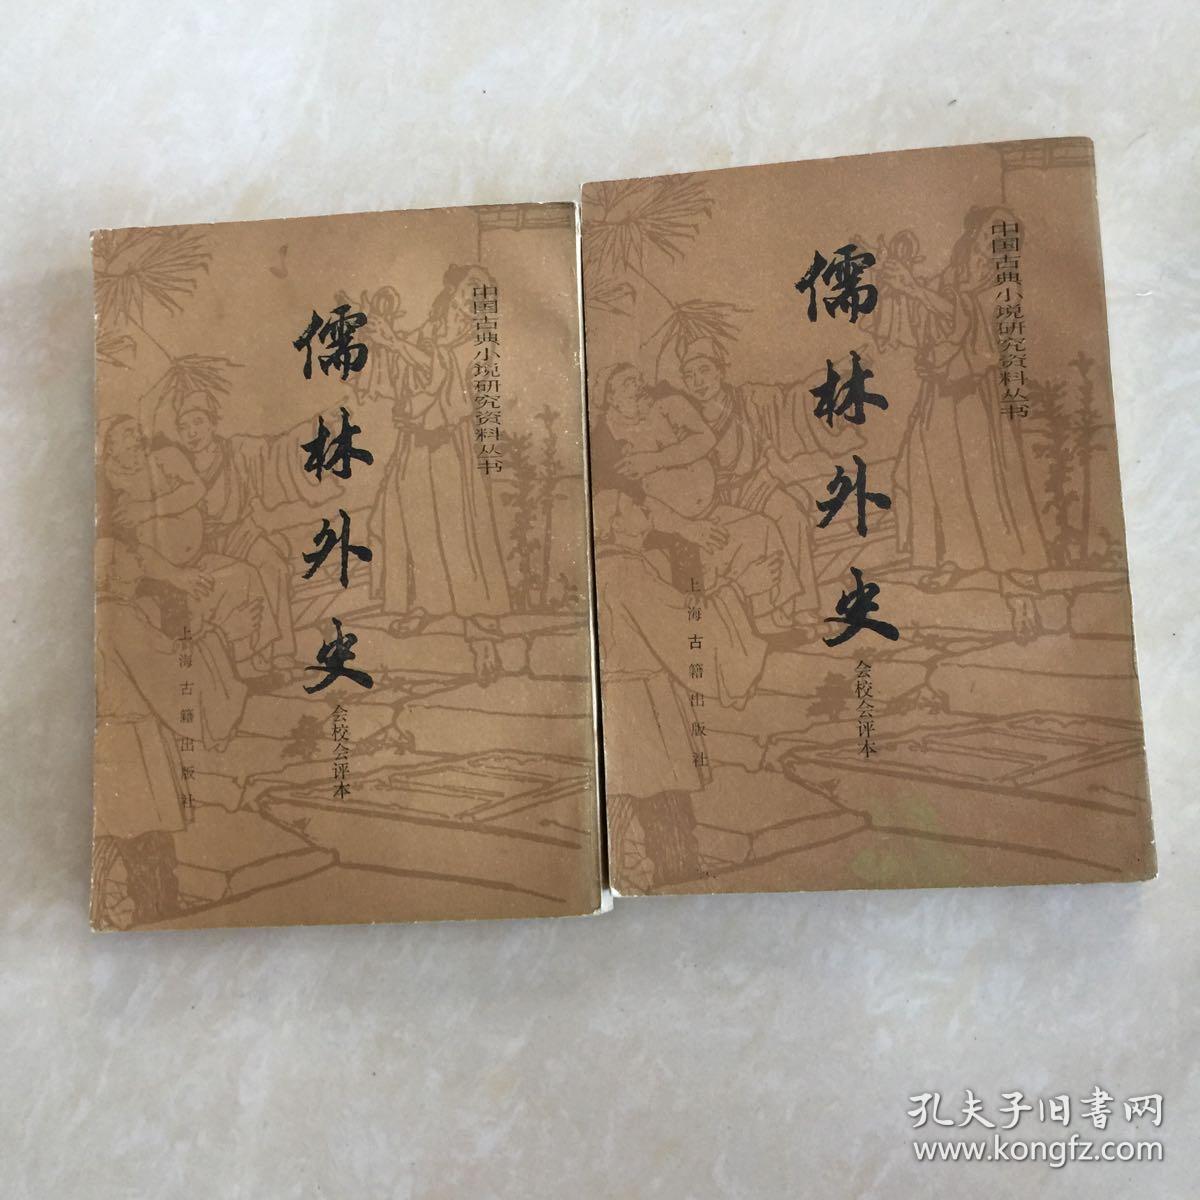 中国古典小说研究资料丛书
儒林外史
会校会评本
上海古籍出版社
中国古典小说研究资料丛书
儒林外史
会校会评本
上海古籍出版社
孔夫子旧书网
www.kongfz.com